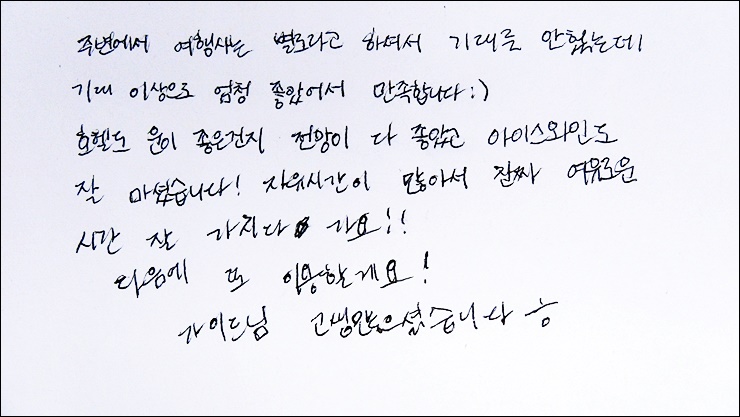 주변에서 여행사는 별로라고 하셔서 기대를 안했는데
기대 이상으로 엄청 좋았어서 만족합니다:)
호텔도 운이 좋은건지 전망이 다 좋았고 아이스와인도
잘 마셨습니다! 자유시간이 많아서 진짜 여유로운
시간 잘 가지다 가요!!
다음에 또 이용할게요!
가이드님 고생많으셨습니다